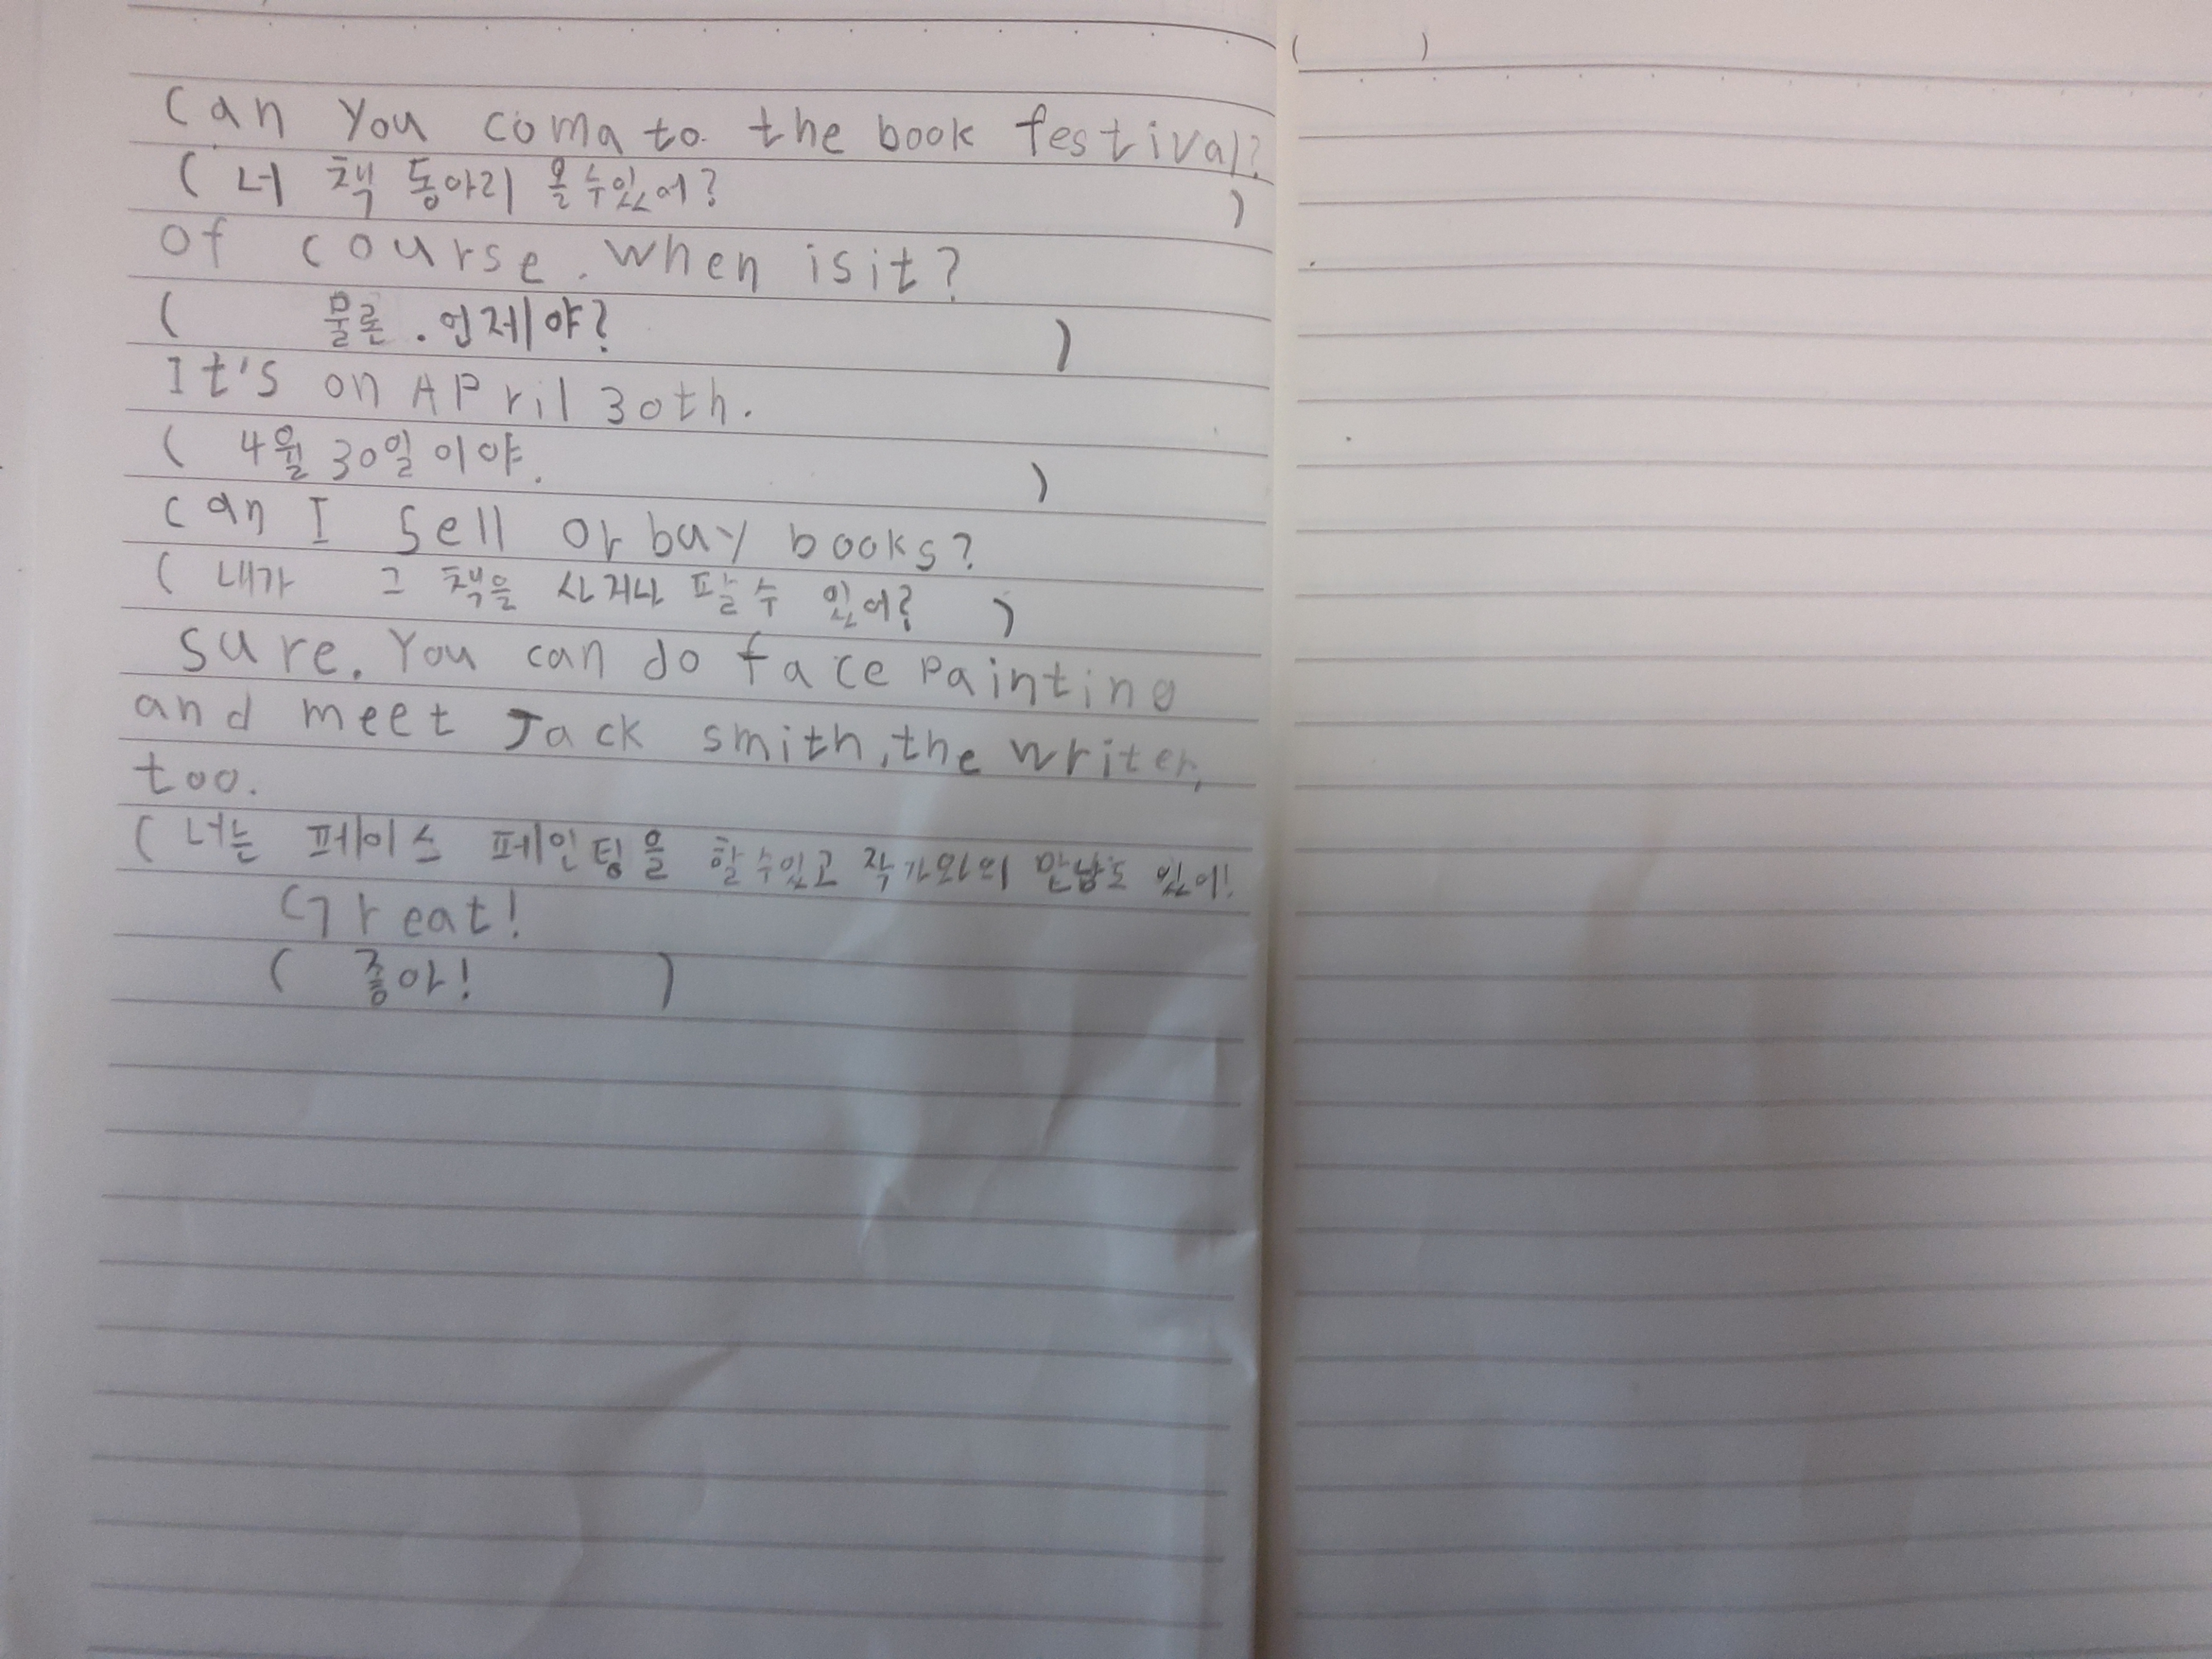 (          )
can you coma to the book festival?
( 너 책 동아리 올수있어? )
of course. when isit?
( 물론. 언제야? )
It's on APril 30th.
( 4월 30일이야. )
can I sell or buy books?
( 내가 그 책을 사거나 팔 수 있어? )
sure. You can do face Painting
and meet Jack smith, the writer,
too.
( 너는 페이스 페인팅을 할수있고 작가와의 만남도 있어!
Great!
( 좋아! )